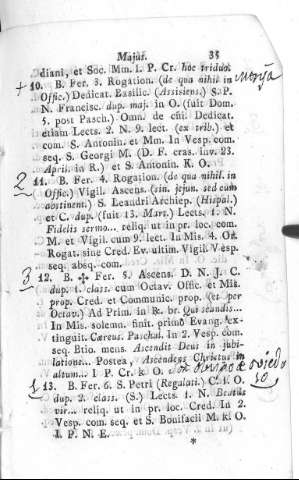 Majus. 35
diani, et Soc. Mm. I. P. Cr. hoc triduo.
+ 10. B. Fer. 3. Rogation. (de qua nihil in
Offic.) Dedicat. Basilic. (Assisiens.) S. P.
N. Francisc. dup. maj. in O. (fuit Dom.
5. post Pasch.) Omn. de cui. Dedicat.
etiam Lects. 2. N. 9. lect. (ex trib.) et
com. S. Antonin. et Mm. In Vesp. com.
seq. S. Georgi M. (D. F. cras. inv. 23.
April. in R.) et S. Antonin. K. O.
2 11. B. Fer. 4. Rogation. (de qua nihil. in
Offic.) Vigil. Ascens. (sin. jejun. sed cum
abstinent.) S. Leandri Archiep. (Hispal.)
et C. dup. (fuit 13. Mart.) Lects. 1. N.
Fidelis sermo... reliq. ut in pr. loc. com.
M. et Vigil. cum 9. lect. In Mis. 4. Or.
Rogat. sine Cred. Ev. ultim. Vigil. Vesp.
seq. absq. com.
3 12. B. ✠ Fer. 5. Ascens. D. N. J. C.
dup. 1. class. cum Octav. Offic. et Mis.
prop. Cred. et Communic. prop. (et per
Octav.) Ad Prim. in R. br. Qui scandis...
In Mis. solemn. finit. primo Evang. ex-
tinguit. Cereus. Paschal. In 2. Vesp. com.
seq. Btio. mens. Ascendit Deus in jubi-
latione... Postea, Ascendens Christus in
altum... I P. Cr. K. O.
1 13. B. Fer. 6. S. Petri (Regalati.) C. I. O.
dup. 2. class. (S.) Lects. 1. N. Beatus
vir... reliq. ut in pr. loc. Cred. In 2.
Vesp. com. seq. et S. Bonifacii M. K. O.
I. P. N. E.
*